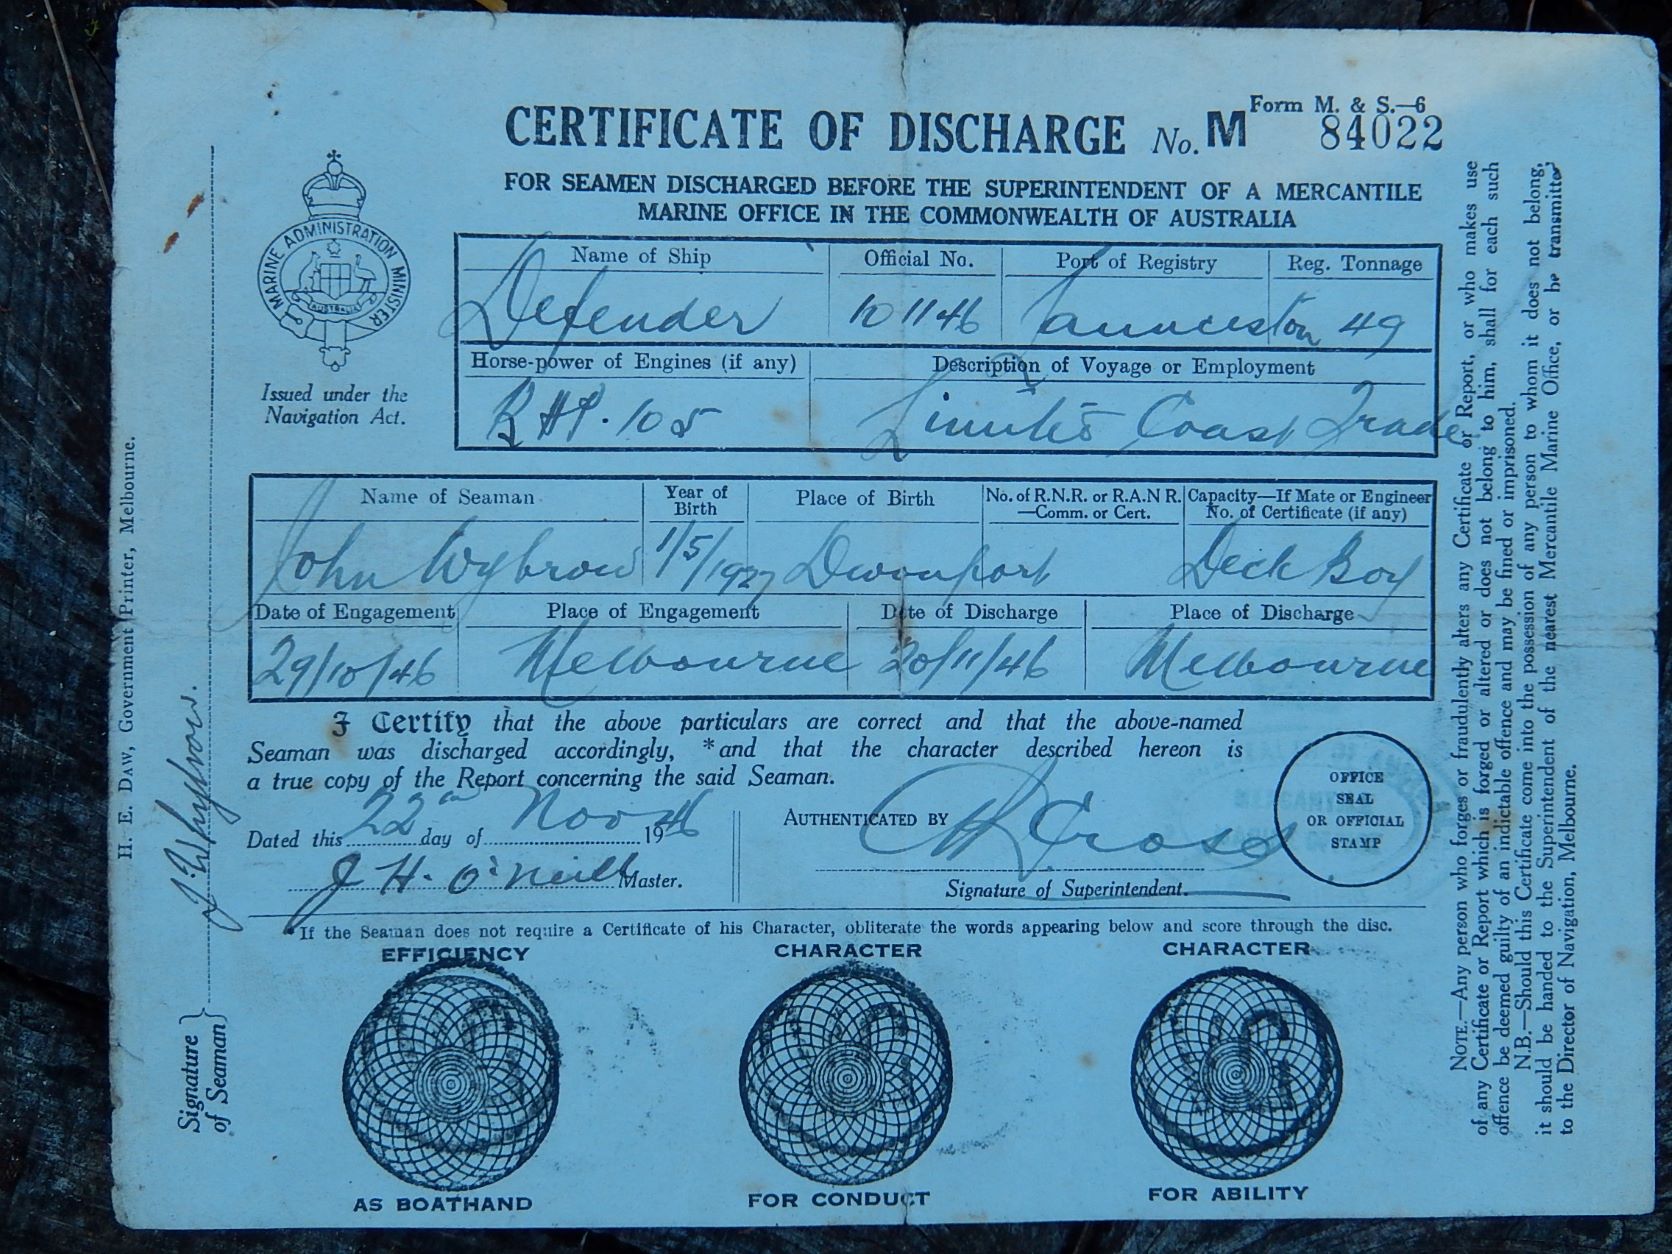 Form M. & S.—6
CERTIFICATE OF DISCHARGE No. M 84022
FOR SEAMEN DISCHARGED BEFORE THE SUPERINTENDENT OF A MERCANTILE
MARINE OFFICE IN THE COMMONWEALTH OF AUSTRALIA
MARINE ADMINISTRATION MINISTER
AUSTRALIA
Issued under the
Navigation Act.
Name of Ship Official No. Port of Registry Reg. Tonnage
Defender 101146 Launceston 49
Horse-power of Engines (if any) Description of Voyage or Employment
BHP. 105 Coast Trade
Name of Seaman Year of Birth Place of Birth No. of R.N.R. or R.A.N R.—Comm. or Cert. Capacity—If Mate or Engineer No. of Certificate (if any)
John Wybrow 1/5/1927 Devonport Deck Boy
Date of Engagement Place of Engagement Date of Discharge Place of Discharge
29/10/46 Melbourne 20/11/46 Melbourne
I Certify that the above particulars are correct and that the above-named
Seaman was discharged accordingly, *and that the character described hereon is
a true copy of the Report concerning the said Seaman.
Dated this 22nd day of Nov 1946
J H. O'Neill Master.
AUTHENTICATED BY Cross
Signature of Superintendent.
OFFICE
SEAL
OR OFFICIAL
STAMP
*If the Seaman does not require a Certificate of his Character, obliterate the words appearing below and score through the disc.
EFFICIENCY CHARACTER CHARACTER
AS BOATHAND FOR CONDUCT FOR ABILITY
H. E. Daw, Government Printer, Melbourne.
Signature
of Seaman
J. Wybrow.
NOTE.—Any person who forges or fraudulently alters any Certificate or Report, or who makes use
of any Certificate or Report which is forged or altered or does not belong to him, shall for each such
offence be deemed guilty of an indictable offence and may be fined or imprisoned.
N.B.—Should this Certificate come into the possession of any person to whom it does not belong,
it should be handed to the Superintendent of the nearest Mercantile Marine Office, or be transmitted
to the Director of Navigation, Melbourne.